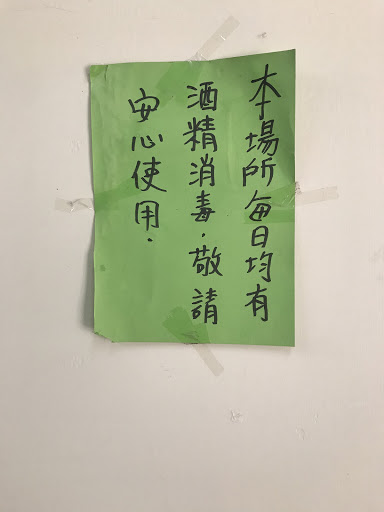 本場所每日均有
酒精消毒.敬請
安心使用.